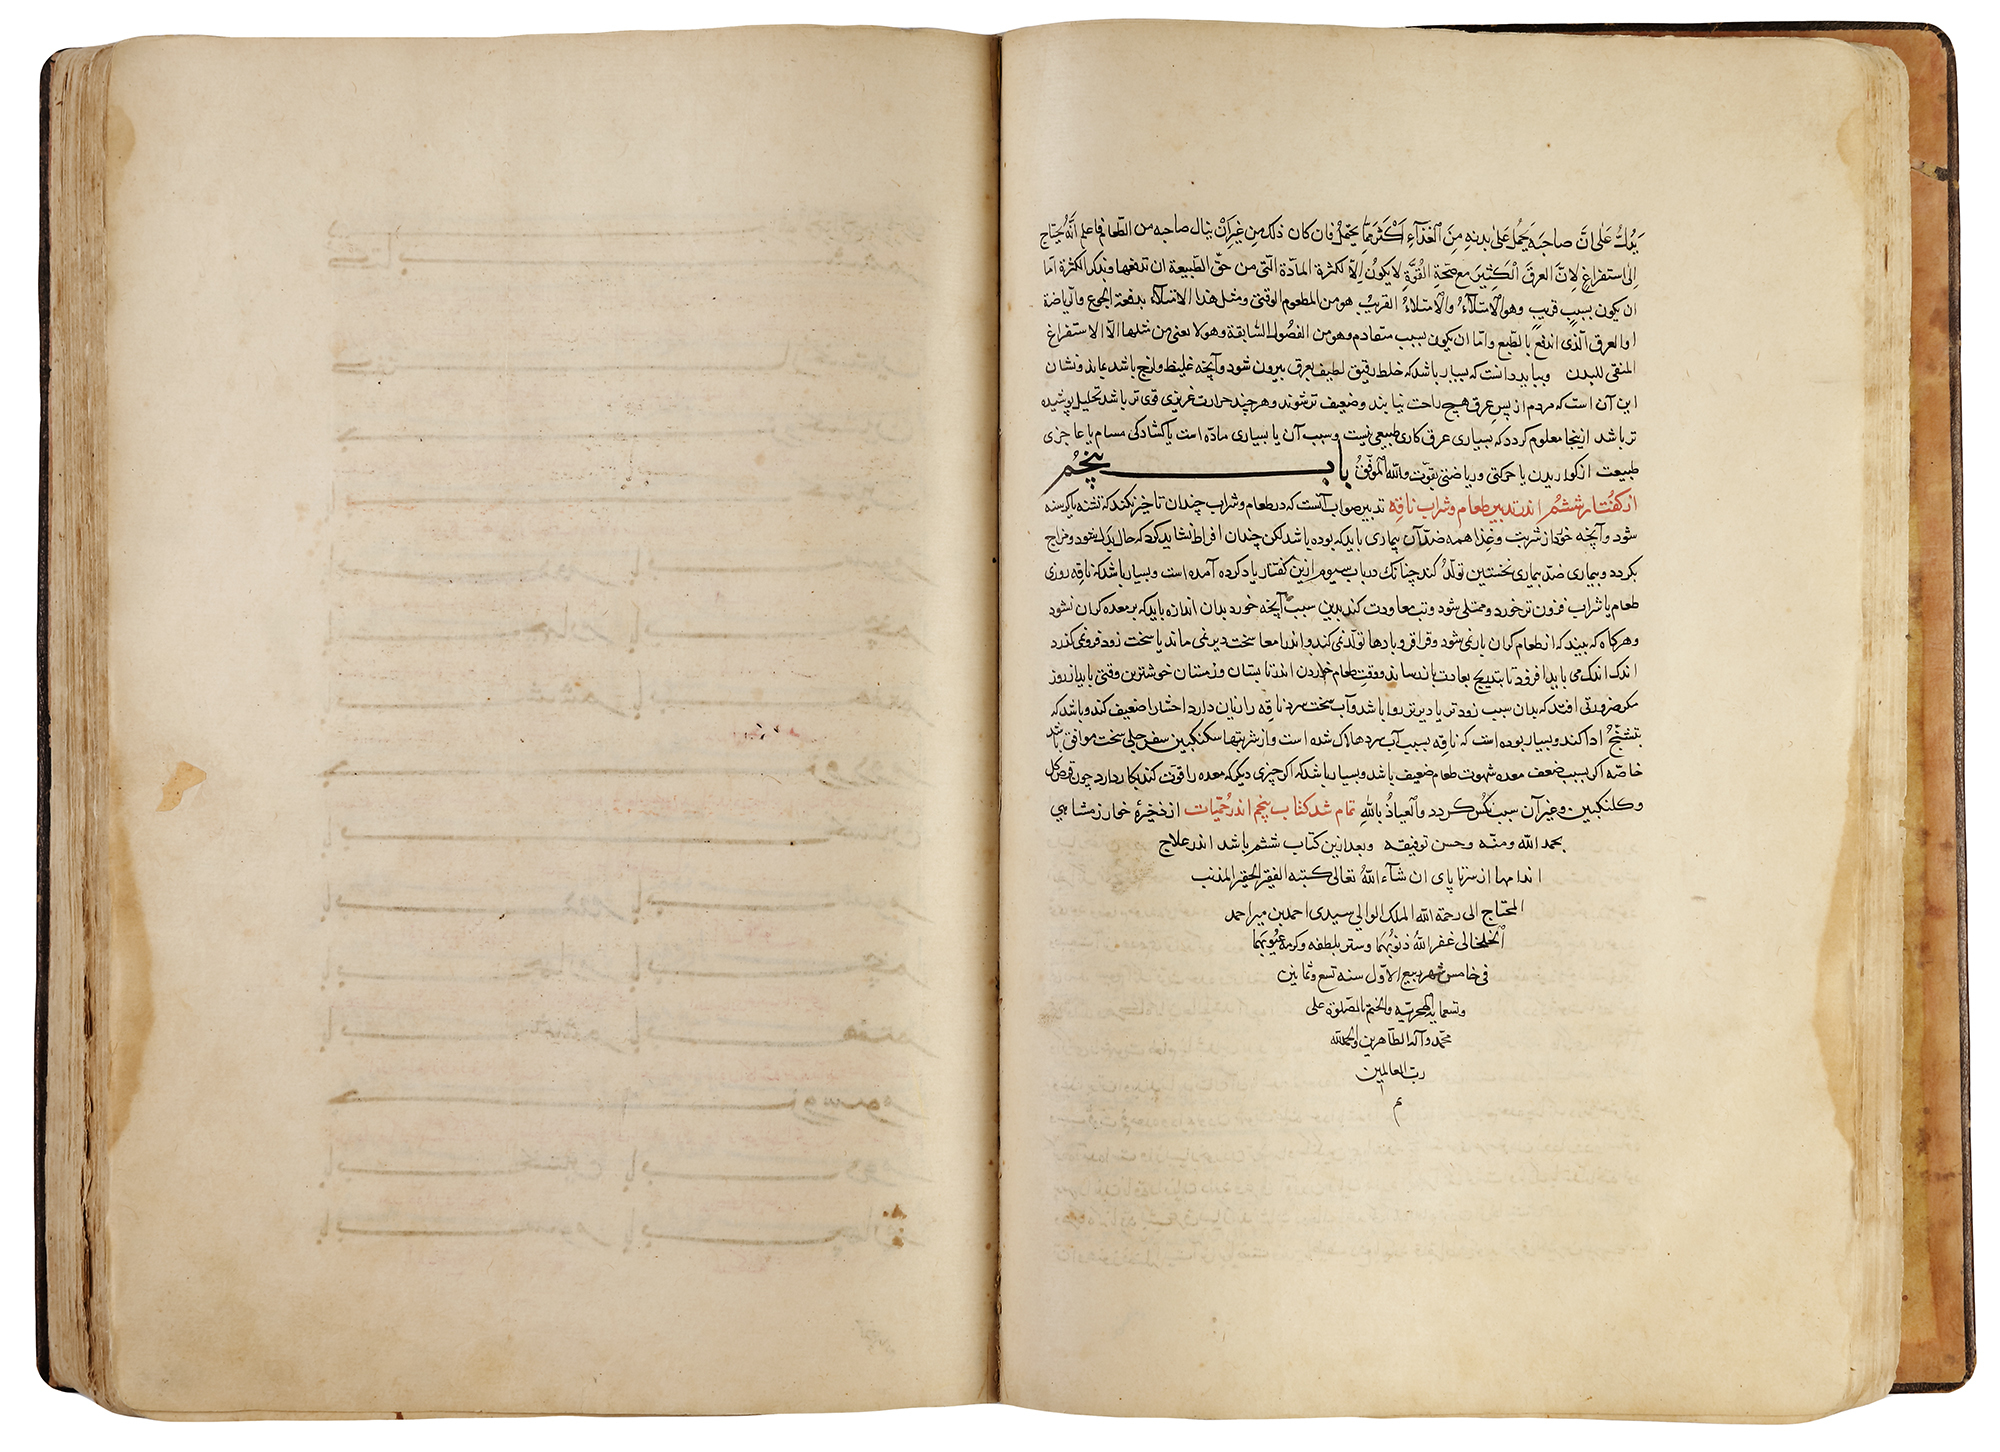 يدلّ على انّ صاحبه يحمل على بدنهِ مِنَ الغذآءِ اَكْثَر مِمّا يحتمل فان كان ذلك مِن غيراَن ينال صاحبه من الطّعام فاعلم انّه يُحتاج
اِلى استفراغٍ لِانّ العرقَ الكَثِيرَ مع صحّةِ القُوّةِ لا يكونُ اِلّا لكثرة المادّة الّتى من حقّ الطّبيعة ان تدفعها وتلك الكثرة امّا
ان يكون بسببٍ قريبٍ وهو الاِمتلآءُ والاِمتلاءُ القريبُ هو من المطعوم الوقتى ومثل هذا الامتلآء يدفعه الجوع والرّياضة
اوالعرق الّذى اندفع بالطّبع وامّا ان يكون بسبب متقادم وهو من الفصول السّابقة وهو لا يغنى من مثلها الّا الاستفراغ
المنقى للبدن وببايد دانست که بسیار باشد که خلط رقیق لطیف بعرق بیرون شود وآنچه غلیظ ولزج باشد بماند ونشان
این آن است که مردم از پس عرق هیچ راحت نیابند وضعیف تر شوند وهر چند حرارت غریزی قوی تر باشد تحلیل پوشیده
تر باشد ازینجا معلوم کردد که بسیاری عرق کاری طبیعی نیست وسبب آن یا بسیاری مادّه است یا کشادکی مسام یا عاجزی
طبیعت از کواریدن یا حرکتی وریاضتی بقوّت واللّه الموفّق باب پنجم
از کفتار ششم اندر تدبیر طعام وشراب ناقِه تدبیر صواب آنست که در طعام وشراب چندان تاخیر نکند که تشنه یا کرسنه
شود وآنچه خورد از شربت وغذا همه ضدّ آن بیماری باید که بوده باشد لکن چندان افراط نشاید کرد که حال بدل شود ومزاج
بکردد وبیماری ضدّ بیماری نخستین تولّد کند چنانک در باب سیوم ازین کفتار یاد کرده آمده است وبسیار باشد که ناقِه روزی
طعام یا شراب فزون تر خورد وممتلی شود وتب معاودت کند بدین سبب آنچه خورد بدان اندازه باید که بر معده کران نشود
وهر کاه که بیند که از طعام کران بار نمی شود وقراقر وبادها تولّد نمی کند واندر امعا سخت دیر نمی ماند یا سخت زود فرو نمی کذرد
اندک اندک می باید افزود تا بتدریج بعادت باز رساند ووقت طعام خوردن اندر تابستان وزمستان خوشترین وقتی باید از روز
مکر ضرورتی افتد که بدان سبب زود تر یا دیر تر روا باشد وآب سخت سرد ناقِه را زیان دارد احشا را ضعیف کند وباشد که
بتشنّج ادا کند وبسیار بوده است که ناقِه بسبب آب سرد هلاک شده است واز شربتها سکنکبین سفرجلی سخت موافق باشد
خاصّه اکر بسبب ضعف معده شهوت طعام ضعیف باشد وبسیار باشد که اکر چیزی دیکر که معده را قوّت کند بکار دارد چون قرص کل
وکلنکبین وغیر آن سبب نکس کردد والعیاذُ باللهِ تمام شد کتاب پنجم اندر حُمّیات از ذخیرهٔ خوارزمشاهی
بحمد اللّه ومنّه وحسن توفیقه وبعد ازین کتاب ششم باشد اندر علاج
اندامها از سر تا پای ان شآء اللّهُ تعالی کتبه الفقیر الحقیر المذنب
المحتاج الی رحمة اللّه الملک الوالی سیدی احمد بن میر احمد
الخلخالی غفر اللّهُ ذنوبَهُما وستر بلطفه وکرمه عیُوبَهُما
فی خامس شهر ربیع الاوّل سنه تسع وثمانین
وتسعمایه الهجریّه والختم بالصّلوة علی
محمّد وآله الطّاهرین والحمدللّه
ربّ العالمین
م